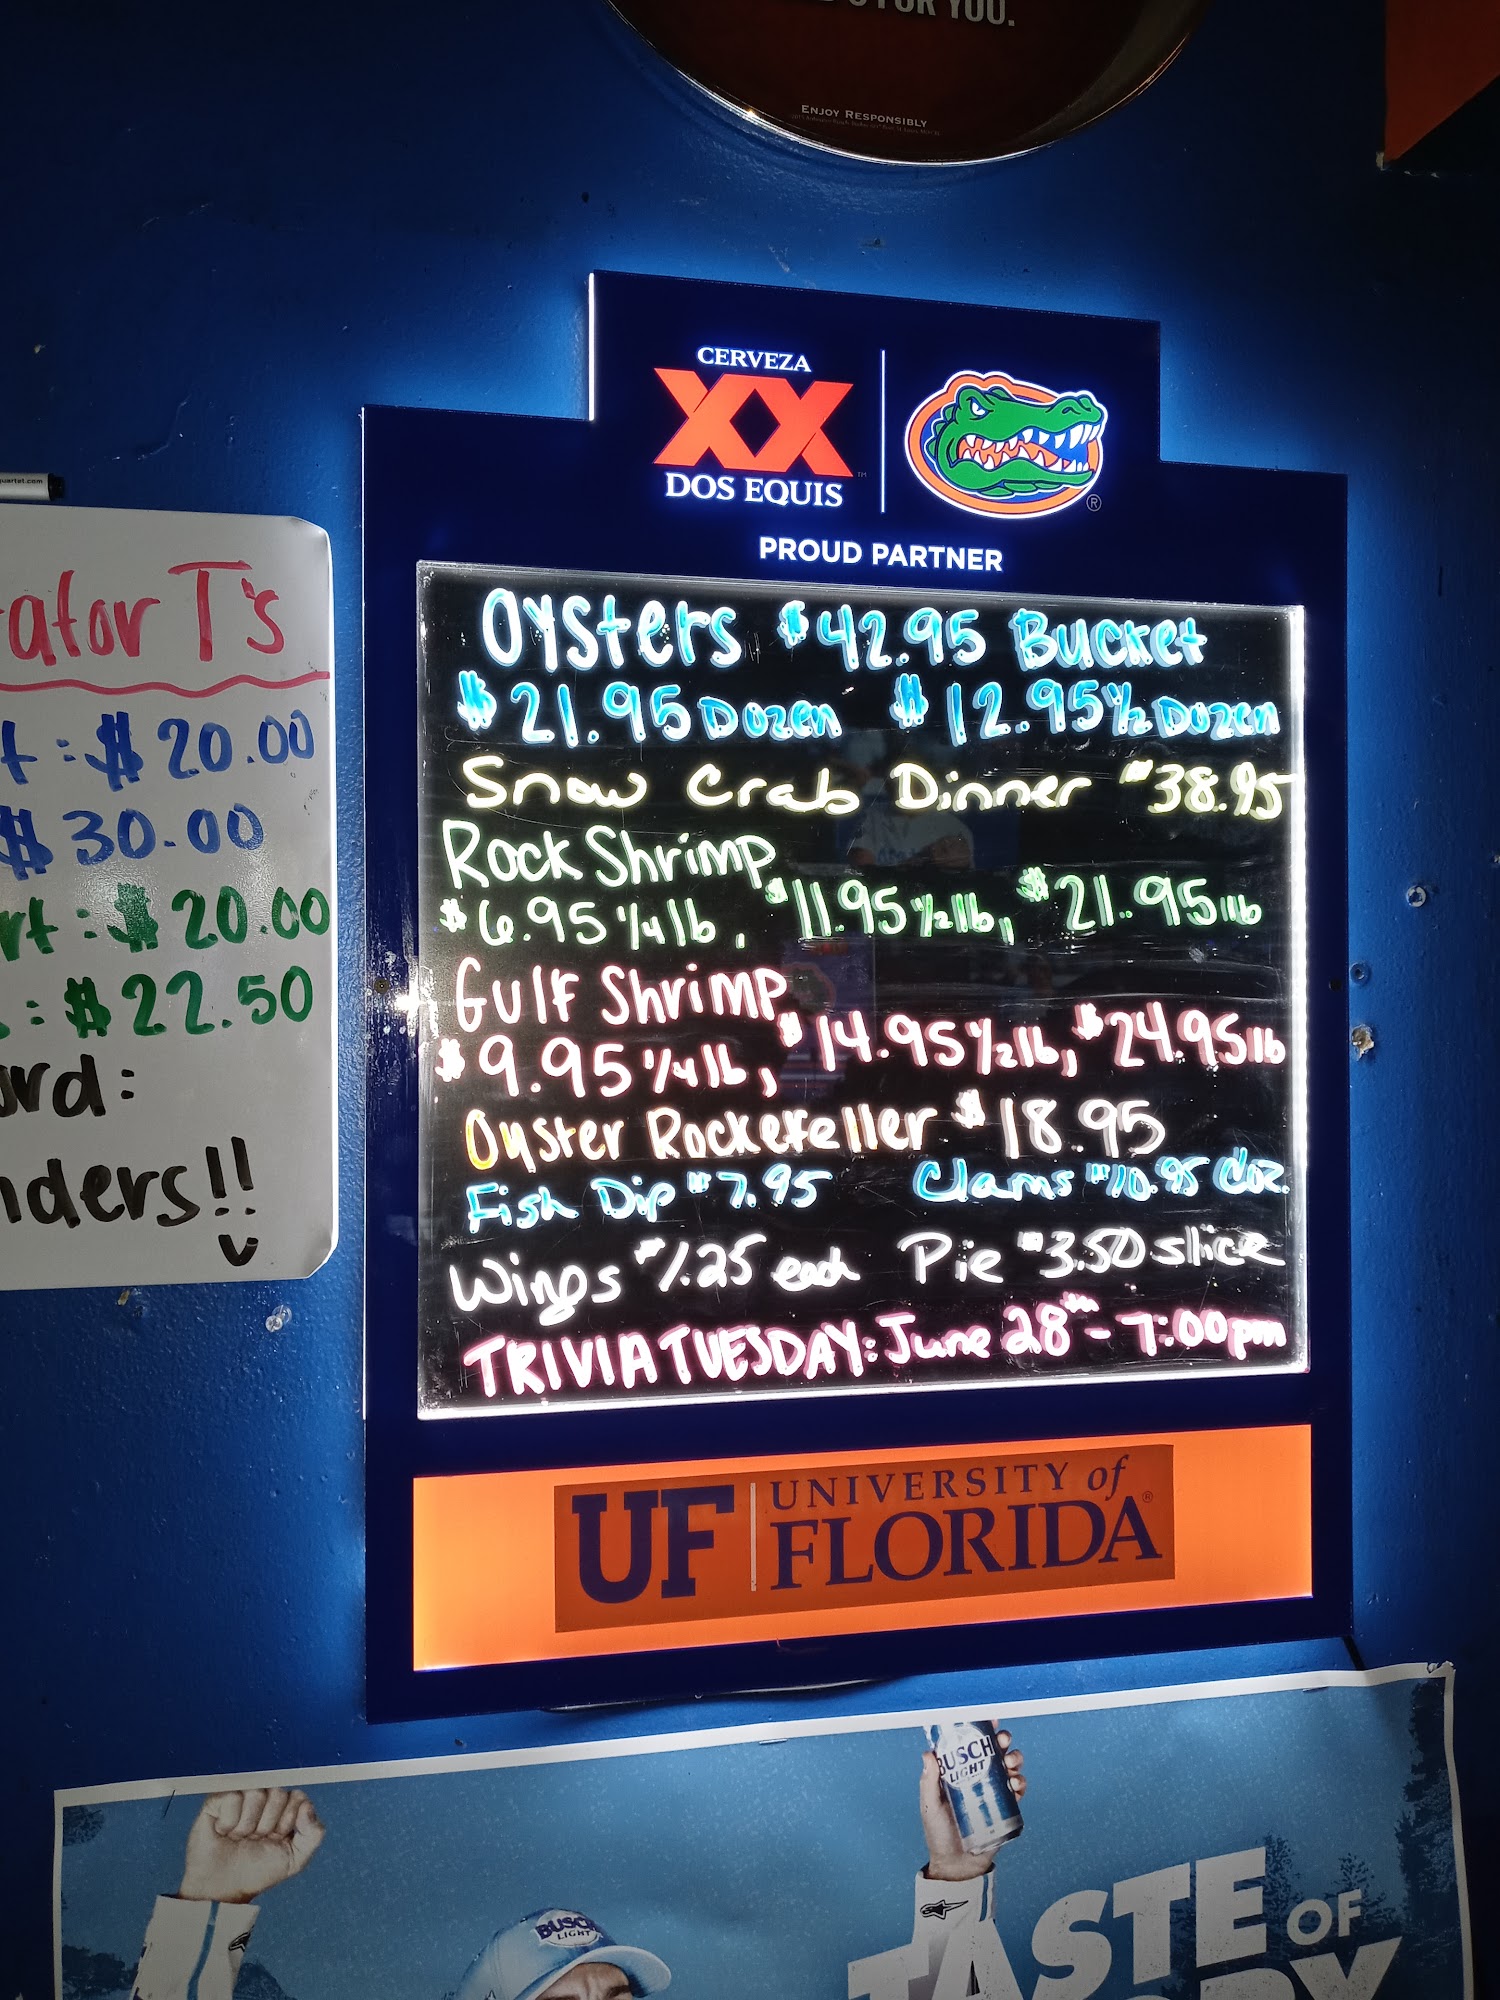 FOR YOU.
ENJOY RESPONSIBLY
quartet.com
ator T's
t : $20.00
$30.00
rt : $20.00
: $22.50
ard:
nders!!
CERVEZA
XX
DOS EQUIS
™
®
PROUD PARTNER
Oysters $42.95 Bucket
$21.95 Dozen $12.95 1/2 Dozen
Snow Crab Dinner $38.95
Rock Shrimp
$6.95 1/4 lb, $11.95 1/2 lb, $21.95 lb
Gulf Shrimp
$9.95 1/4 lb, $14.95 1/2 lb, $24.95 lb
Oyster Rockefeller $18.95
Fish Dip $7.95 Clams $10.95 doz.
Wings $1.25 each Pie $3.50 slice
TRIVIA TUESDAY: June 28th - 7:00pm
UF UNIVERSITY of
FLORIDA®
BUSCH
LIGHT
BUSCH
LIGHT
TASTE OF